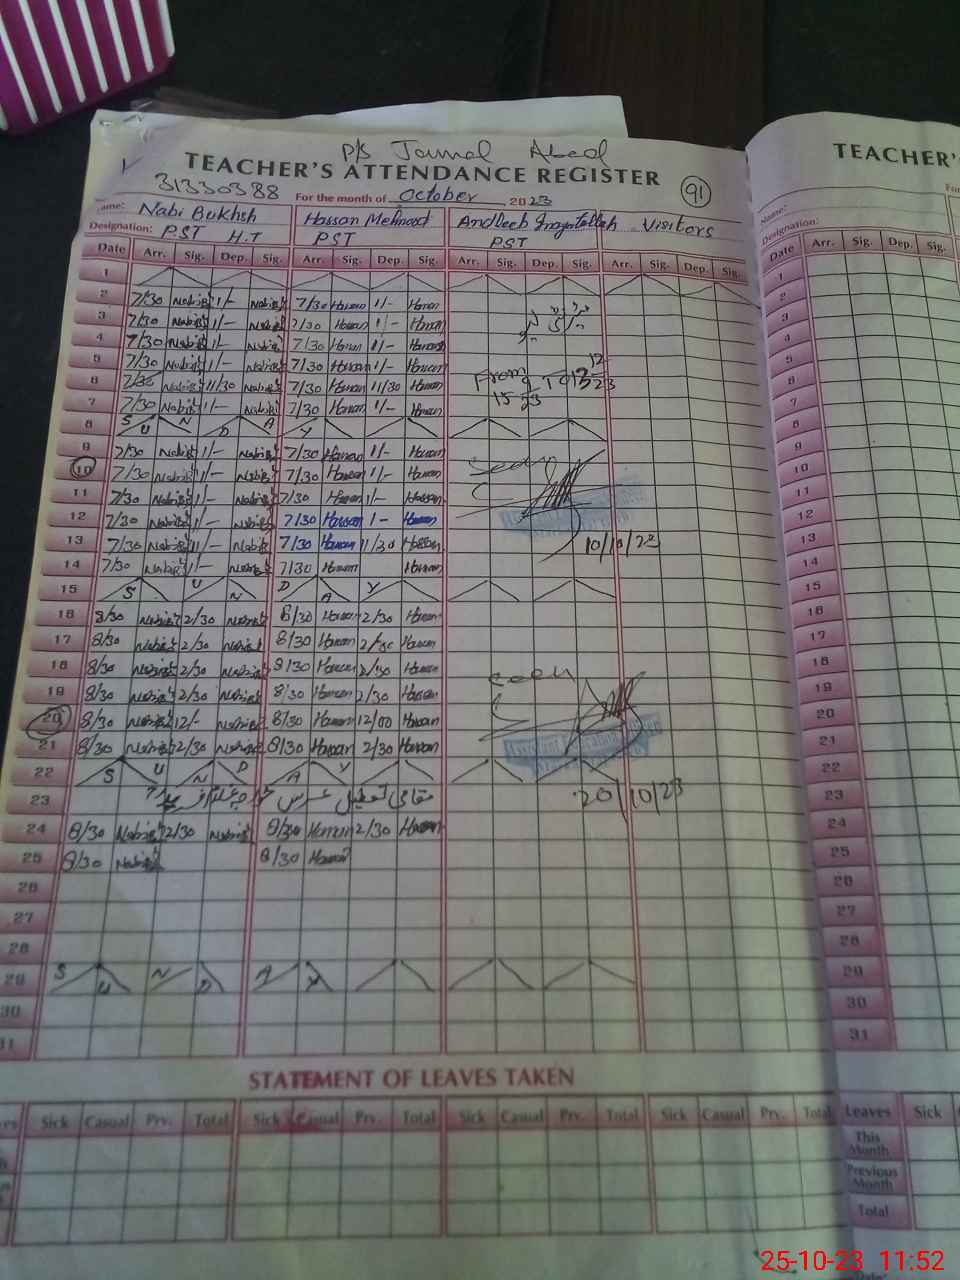 P/S Jamal Abad
TEACHER'S ATTENDANCE REGISTER
TEACHER'
31330388 For the month of October 2023
91
Name: Nabi Bukhsh Hassan Mehmood Andleeb Inayatullah Visitors
Name:
Designation: P.ST H.T PST PST
Designation:
Date Arr. Sig. Dep. Sig. Arr. Sig. Dep. Sig. Arr. Sig. Dep. Sig. Arr. Sig. Dep. Sig.
Date Arr. Sig. Dep. Sig.
1
2 7/30 Nabi 1/- Nabi 7/30 Hassan 1/- Hassan
3 7/30 Nabi 1/- Nabi 7/30 Hassan 1/- Hassan
4 7/30 Nabi 1/- Nabi 7/30 Hassan 1/- Hassan
5 7/30 Nabi 1/- Nabi 7/30 Hassan 1/- Hassan
6 7/30 Nabi 11/30 Nabi 7/30 Hassan 11/30 Hassan From To
7 7/30 Nabi 1/- Nabi 7/30 Hassan 1/- Hassan
8 S U N D A Y
9 7/30 Nabi 1/- Nabi 7/30 Hassan 1/- Hassan
10 7/30 Nabi 1/- Nabi 7/30 Hassan 1/- Hassan Seen
11 7/30 Nabi 1/- Nabi 7/30 Hassan 1/- Hassan
12 7/30 Nabi 1/- Nabi 7/30 Hassan 1/- Hassan
13 7/30 Nabi 11/- Nabi 7/30 Hassan 11/30 Hassan 10/10/23
14 7/30 Nabi 1/- Nabi 7/30 Hassan Hassan
15 S U N D A Y
16 8/30 Nabi 2/30 Nabi 8/30 Hassan 2/30 Hassan
17 8/30 Nabi 2/30 Nabi 8/30 Hassan 2/30 Hassan
18 8/30 Nabi 2/30 Nabi 8/30 Hassan 2/30 Hassan Seen
19 8/30 Nabi 2/30 Nabi 8/30 Hassan 2/30 Hassan
20 8/30 Nabi 12/- Nabi 8/30 Hassan 12/00 Hassan
21 8/30 Nabi 2/30 Nabi 8/30 Hassan 2/30 Hassan
22 S U N D A Y
23 مقامی تعطیل عرس خواجہ غلام فرید 20/10/23
24 8/30 Nabi 2/30 Nabi 8/30 Hassan 2/30 Hassan
25 8/30 Nabi 8/30 Hassan
26
27
28
29 S U N D A Y
30
31
1
2
3
4
5
6
7
8
9
10
11
12
13
14
15
16
17
18
19
20
21
22
23
24
25
26
27
28
29
30
31
STATEMENT OF LEAVES TAKEN
Sick Casual Prv. Total Sick Casual Prv. Total Sick Casual Prv. Total Sick Casual Prv. Total
Leaves Sick
This Month
Previous Month
Total
25-10-23 11:52